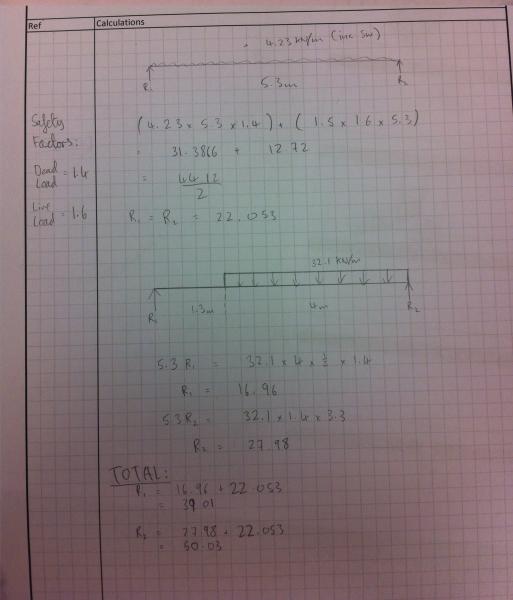 Ref
Calculations
4.23 kN/m (inc SW)
R₁
5.3m
R₂
Safety
Factors:
Dead
Load = 1.4
Live
Load = 1.6
(4.23 x 5.3 x 1.4) + (1.5 x 1.6 x 5.3)
= 31.3866 + 12.72
= 44.12
2
R₁ = R₂ = 22.053
32.1 kN/m
R₁
1.3m
4m
R₂
5.3 R₁ = 32.1 x 4 x ½ x 1.4
R₁ = 16.96
5.3R₂ = 32.1 x 1.4 x 3.3
R₂ = 27.98
TOTAL:
R₁ = 16.96 + 22.053
= 39.01
R₂ = 27.98 + 22.053
= 50.03